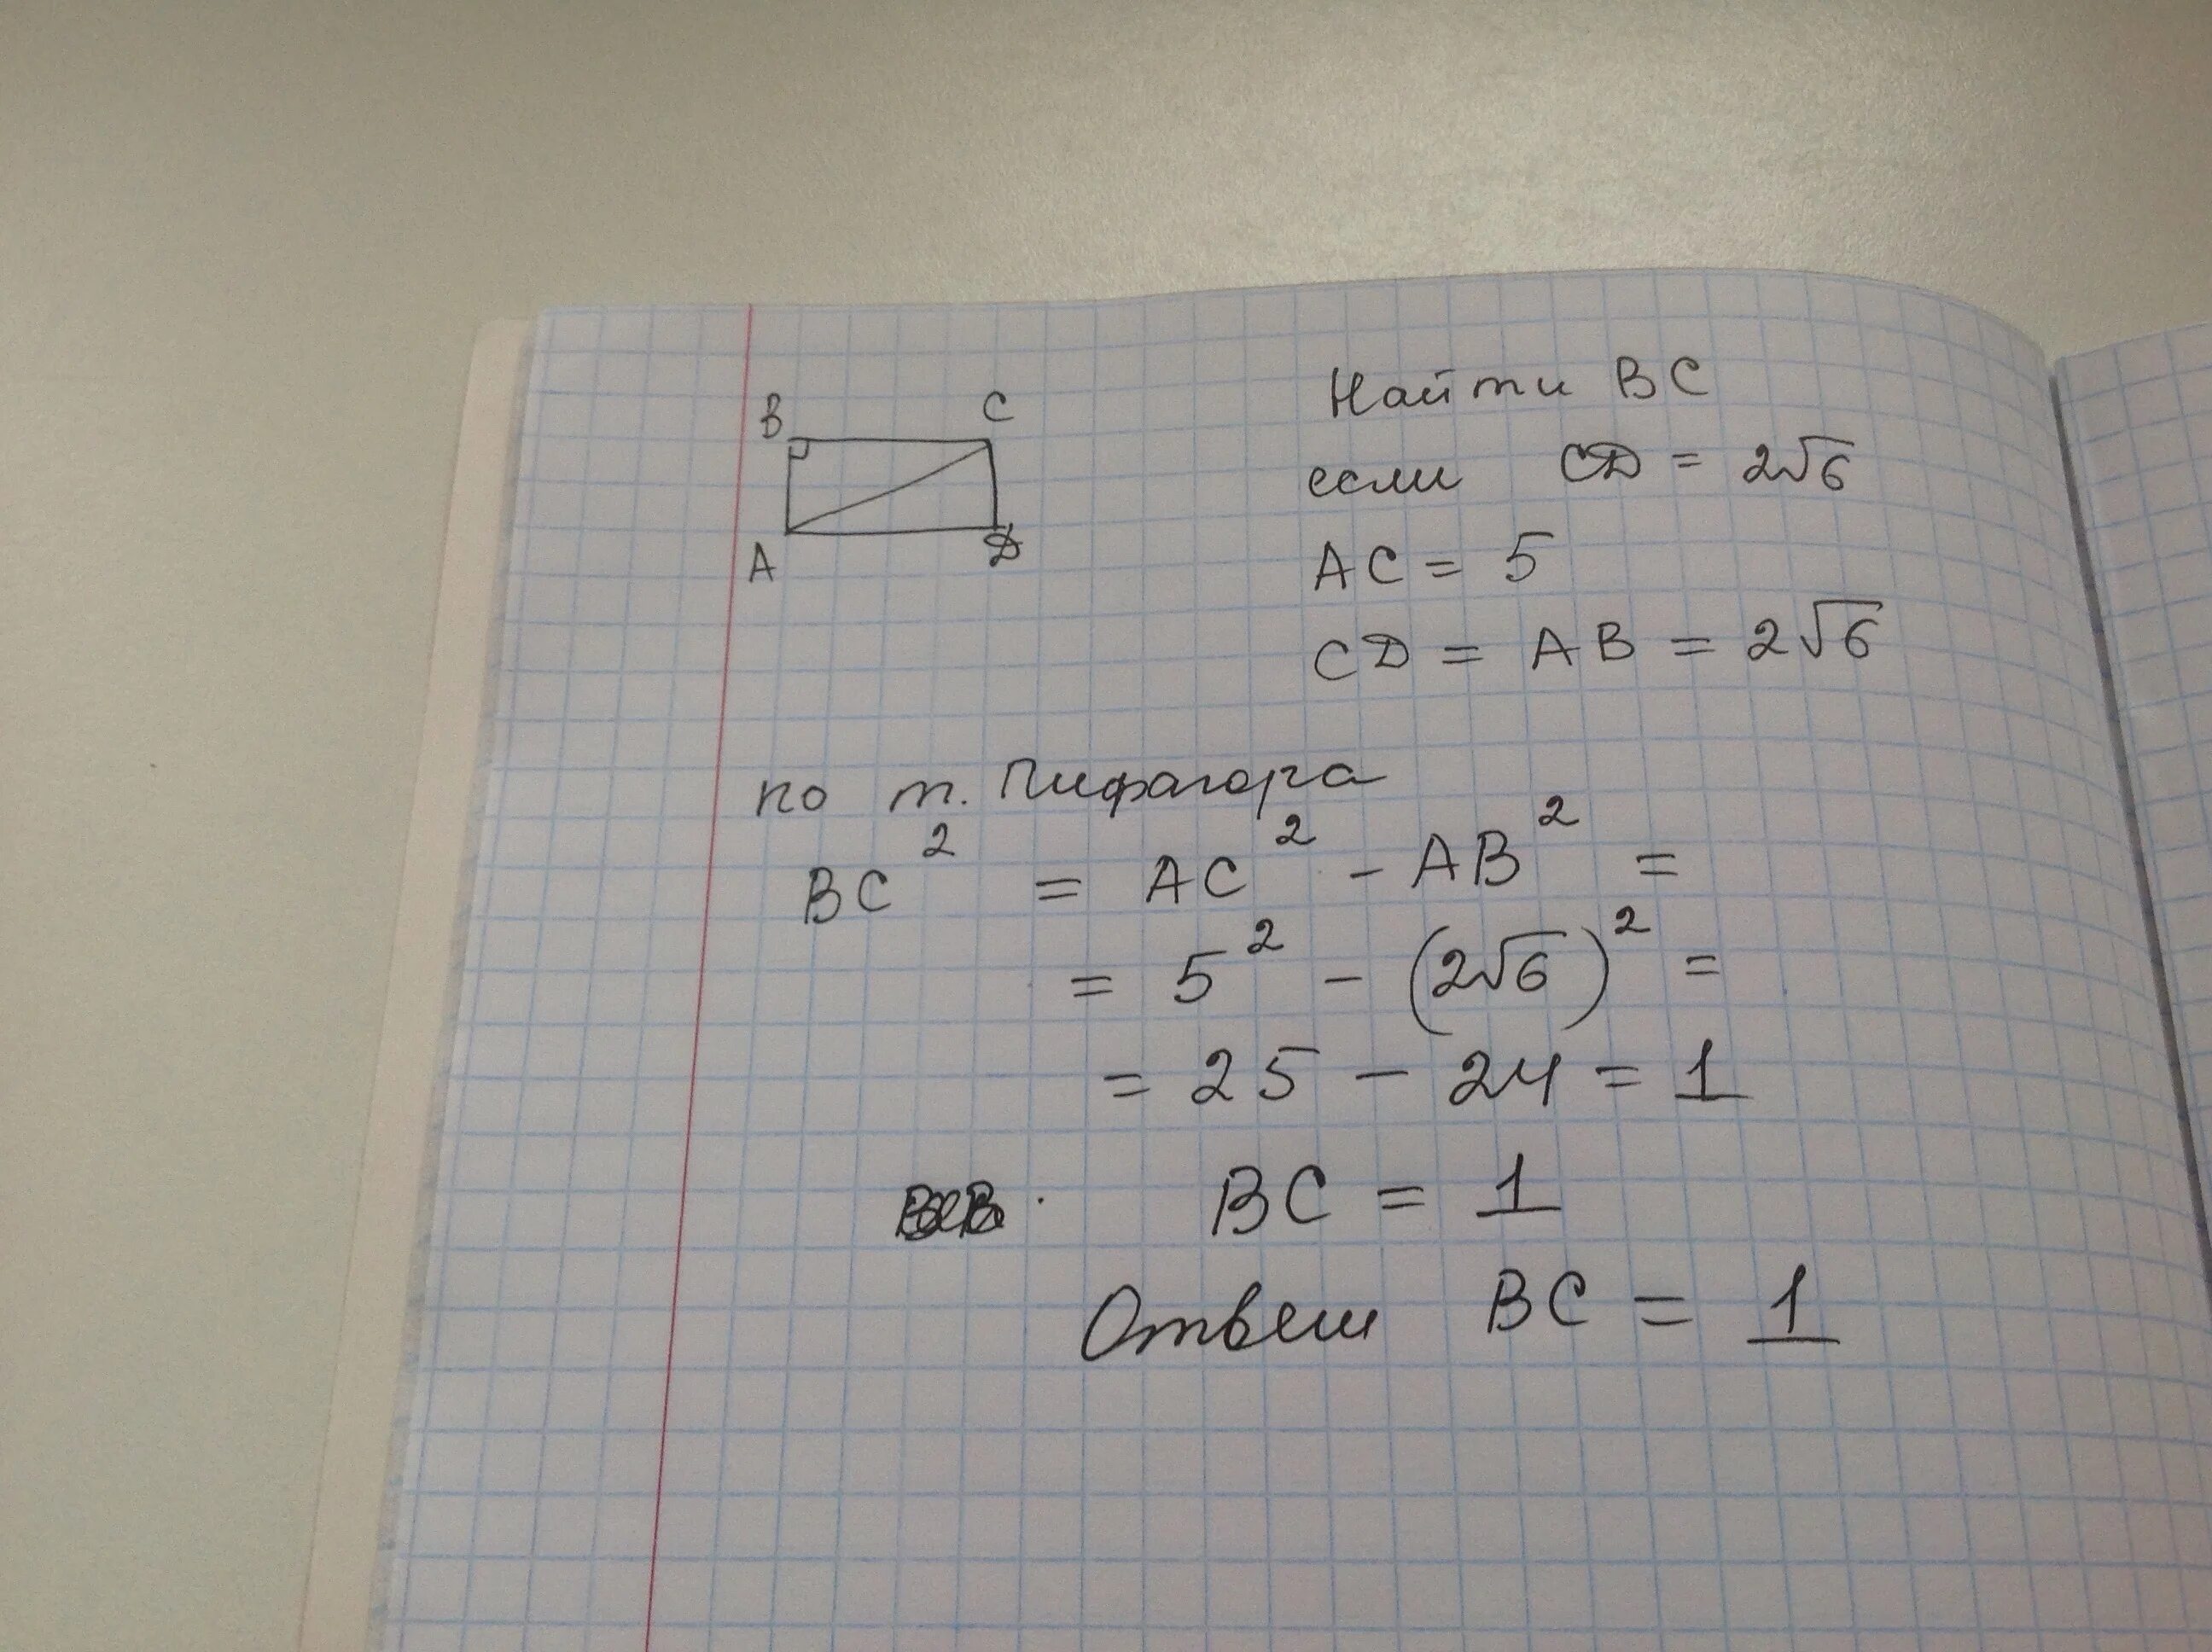 B C
A D
Найти BC
если CD = 2√6
AC = 5
CD = AB = 2√6
по т. Пифагора
BC² = AC² - AB² =
= 5² - (2√6)² =
= 25 - 24 = 1
BC = 1
Ответ BC = 1